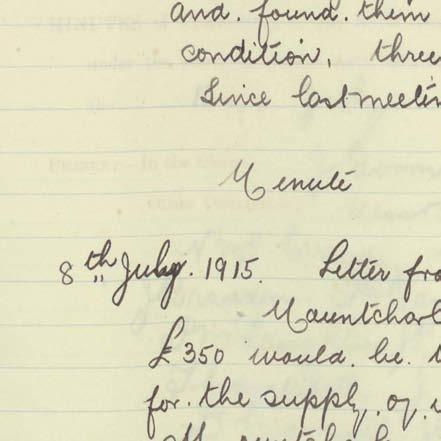 and. found. them
condition, three
Since last meetin
Minute
8th July. 1915. Letter fro
Mountcharl
£350 would. be.
for. the supply. of.